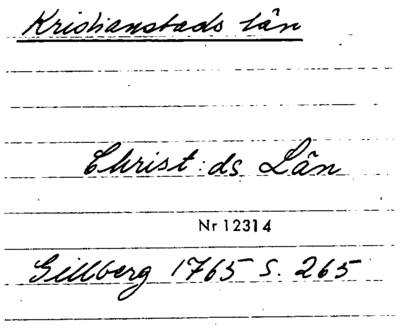 Kristianstads län
Christ:ds Län
Nr 12314
Gillberg 1765 S. 265